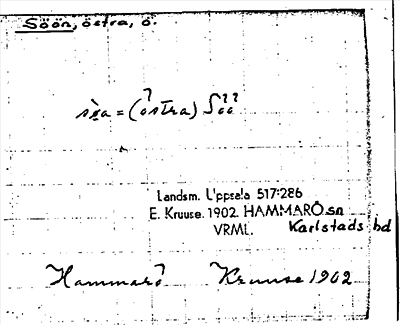 Söön, östra, ö.
= (östra)
Landsm. Uppsala 517:286
E. Kruuse. 1902. HAMMARÖ sn
VRML. Karlstads hd
Hammarö Kruuse 1902